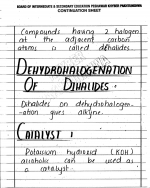 BOARD OF INTERMEDIATE & SECONDARY EDUCATION PESHAWAR KHYBER PAKHTUNKHWA
CONTINUATION SHEET
Compounds having 2 halogen
at the adjacent carbon
atoms is called dihalides.
DEHYDROHALOGENATION
OF DIHALIDES:
Dihalides on dehydrohalogen-
-ation gives alkyne.
CATALYST:
Potassium hydroxid (KOH)
alcoholic can be used as
a catalyst.